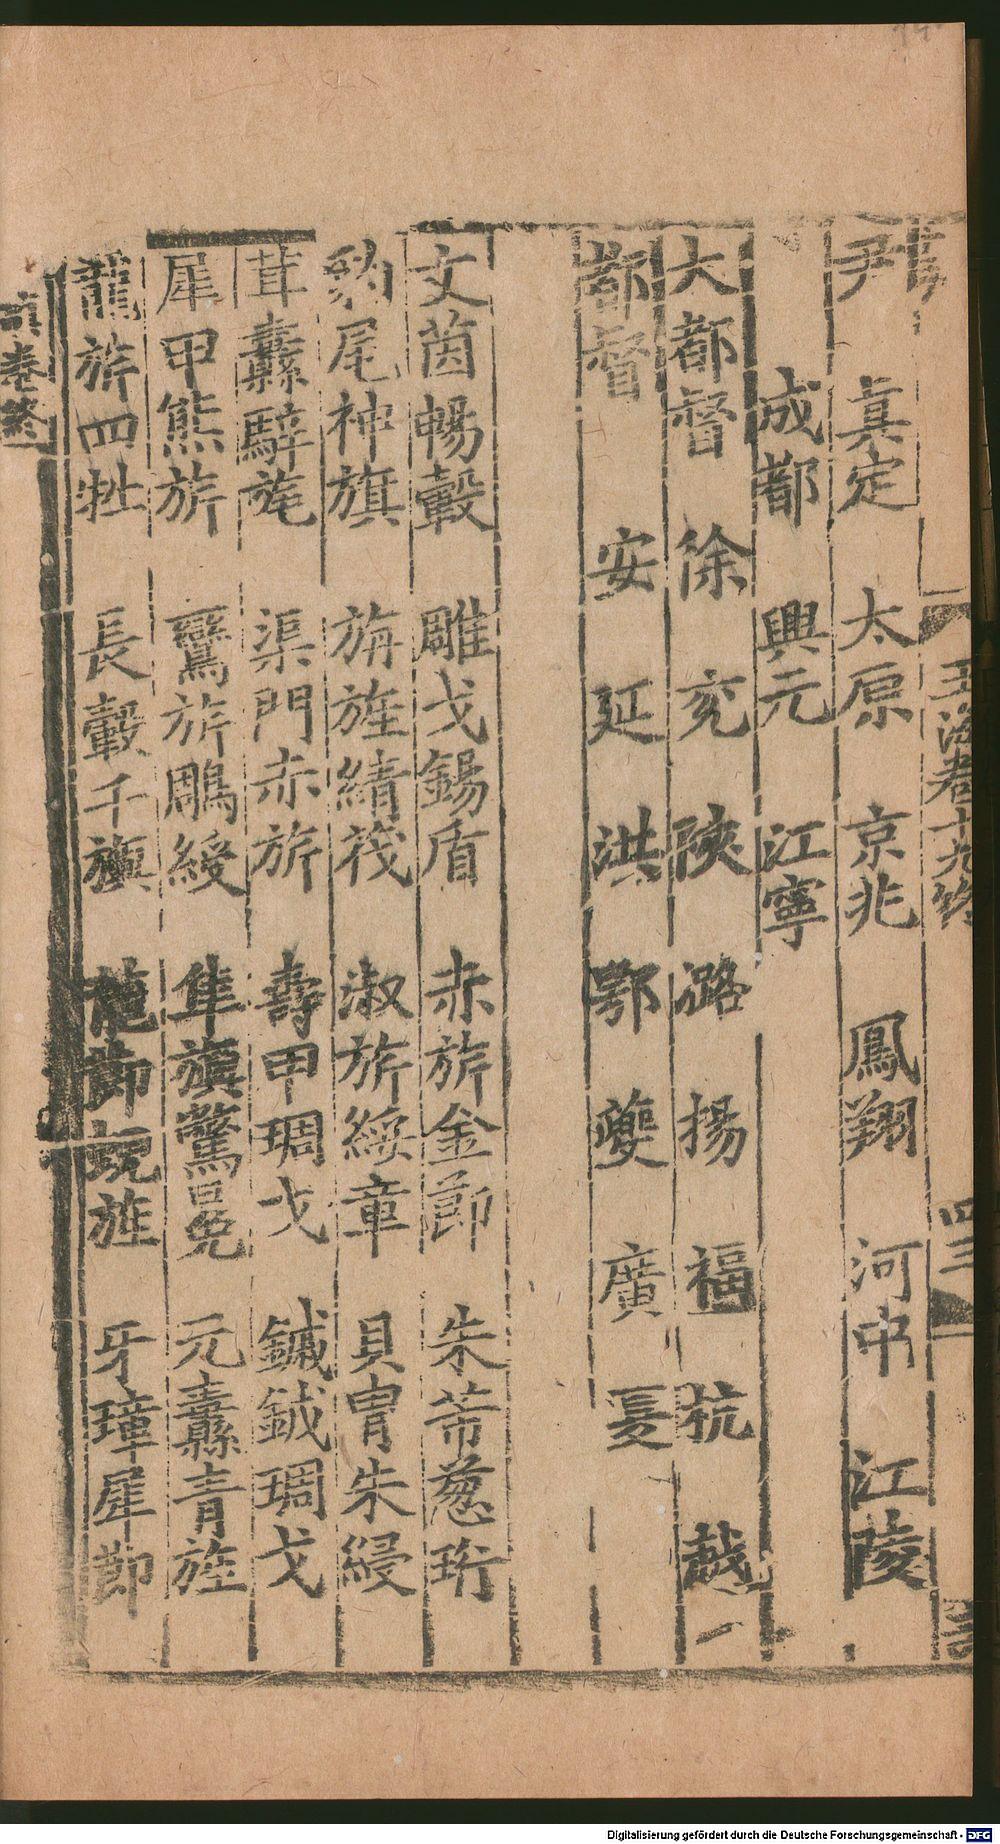 玉海卷十九終
四三
尹 真定 太原 京兆 鳳翔 河中 江陵
成都 興元 江寧
大都督 徐 兗 陝 潞 揚 福 杭 越
都督 安 延 洪 鄂 夔 廣
文茵暢轂 雕戈鍚盾 赤旂金節 朱芾蔥珩
豹尾神旗 旃旌綪茷 淑旂綏章 貝冑朱綅
茸纛騂旄 渠門赤旂 壽甲琱戈 鏚鉞琱戈
犀甲熊旂 鸞旂鵰綬 隼旟鷩冕 元纛青旌
龍旂四牡 長轂千旟 龍節 旌 牙璋犀節
卷終
Digitalisierung gefördert durch die Deutsche Forschungsgemeinschaft - DFG